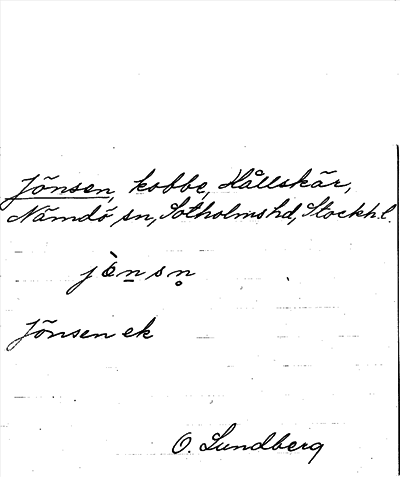 Jönsen, kobbe, Hållskär,
Nämdö sn, Sotholmshd, Stockh.l.
jö̀n̲sn̥
Jönsen ek
O. Lundberg